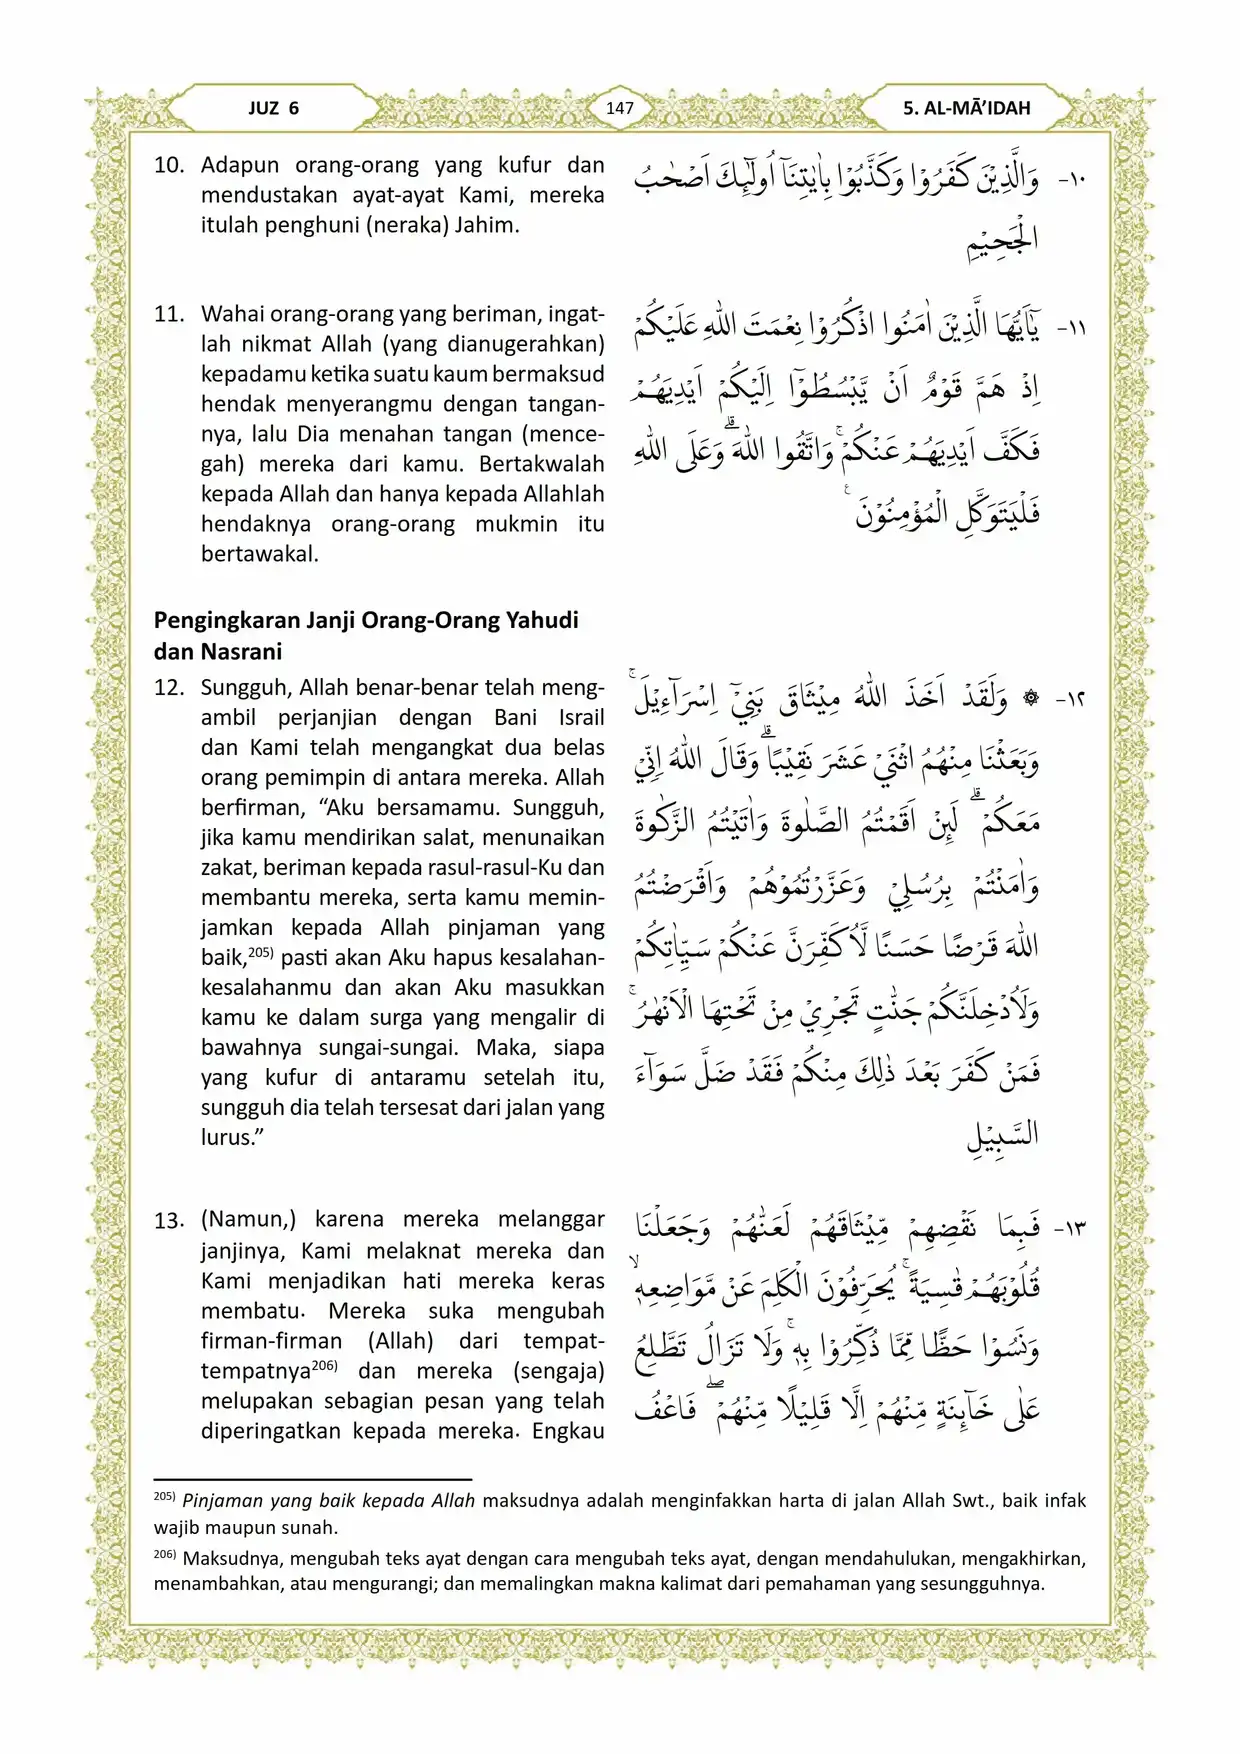 JUZ 6
147
5. AL-MĀ’IDAH
10. Adapun orang-orang yang kufur dan
mendustakan ayat-ayat Kami, mereka
itulah penghuni (neraka) Jahim.
١٠- وَالَّذِيْنَ كَفَرُوْا وَكَذَّبُوْا بِاٰيٰتِنَآ اُولٰۤىِٕكَ اَصْحٰبُ
الْجَحِيْمِ
11. Wahai orang-orang yang beriman, ingat-
lah nikmat Allah (yang dianugerahkan)
kepadamu ketika suatu kaum bermaksud
hendak menyerangmu dengan tangan-
nya, lalu Dia menahan tangan (mence-
gah) mereka dari kamu. Bertakwalah
kepada Allah dan hanya kepada Allahlah
hendaknya orang-orang mukmin itu
bertawakal.
١١- يٰٓاَيُّهَا الَّذِيْنَ اٰمَنُوا اذْكُرُوْا نِعْمَتَ اللّٰهِ عَلَيْكُمْ
اِذْ هَمَّ قَوْمٌ اَنْ يَّبْسُطُوْٓا اِلَيْكُمْ اَيْدِيَهُمْ
فَكَفَّ اَيْدِيَهُمْ عَنْكُمْۚ وَاتَّقُوا اللّٰهَ ۗوَعَلَى اللّٰهِ
فَلْيَتَوَكَّلِ الْمُؤْمِنُوْنَ ࣖ
Pengingkaran Janji Orang-Orang Yahudi
dan Nasrani
12. Sungguh, Allah benar-benar telah meng-
ambil perjanjian dengan Bani Israil
dan Kami telah mengangkat dua belas
orang pemimpin di antara mereka. Allah
berfirman, “Aku bersamamu. Sungguh,
jika kamu mendirikan salat, menunaikan
zakat, beriman kepada rasul-rasul-Ku dan
membantu mereka, serta kamu memin-
jamkan kepada Allah pinjaman yang
baik,205) pasti akan Aku hapus kesalahan-
kesalahanmu dan akan Aku masukkan
kamu ke dalam surga yang mengalir di
bawahnya sungai-sungai. Maka, siapa
yang kufur di antaramu setelah itu,
sungguh dia telah tersesat dari jalan yang
lurus.”
١٢- ۞ وَلَقَدْ اَخَذَ اللّٰهُ مِيْثَاقَ بَنِيْٓ اِسْرَاۤءِيْلَۚ
وَبَعَثْنَا مِنْهُمُ اثْنَيْ عَشَرَ نَقِيْبًاۗ وَقَالَ اللّٰهُ اِنِّيْ
مَعَكُمْ ۗ لَىِٕنْ اَقَمْتُمُ الصَّلٰوةَ وَاٰتَيْتُمُ الزَّكٰوةَ
وَاٰمَنْتُمْ بِرُسُلِيْ وَعَزَّرْتُمُوْهُمْ وَاَقْرَضْتُمُ
اللّٰهَ قَرْضًا حَسَنًا لَّاُكَفِّرَنَّ عَنْكُمْ سَيِّاٰتِكُمْ
وَلَاُدْخِلَنَّكُمْ جَنّٰتٍ تَجْرِيْ مِنْ تَحْتِهَا الْاَنْهٰرُۚ
فَمَنْ كَفَرَ بَعْدَ ذٰلِكَ مِنْكُمْ فَقَدْ ضَلَّ سَوَاۤءَ
السَّبِيْلِ
13. (Namun,) karena mereka melanggar
janjinya, Kami melaknat mereka dan
Kami menjadikan hati mereka keras
membatu. Mereka suka mengubah
firman-firman (Allah) dari tempat-
tempatnya206) dan mereka (sengaja)
melupakan sebagian pesan yang telah
diperingatkan kepada mereka. Engkau
١٣- فَبِمَا نَقْضِهِمْ مِّيْثَاقَهُمْ لَعَنّٰهُمْ وَجَعَلْنَا
قُلُوْبَهُمْ قٰسِيَةً ۚ يُحَرِّفُوْنَ الْكَلِمَ عَنْ مَّوَاضِعِهٖۙ
وَنَسُوْا حَظًّا مِّمَّا ذُكِّرُوْا بِهٖۚ وَلَا تَزَالُ تَطَّلِعُ
عَلٰى خَاۤىِٕنَةٍ مِّنْهُمْ اِلَّا قَلِيْلًا مِّنْهُمْ ۖ فَاعْفُ
205) Pinjaman yang baik kepada Allah maksudnya adalah menginfakkan harta di jalan Allah Swt., baik infak
wajib maupun sunah.
206) Maksudnya, mengubah teks ayat dengan cara mengubah teks ayat, dengan mendahulukan, mengakhirkan,
menambahkan, atau mengurangi; dan memalingkan makna kalimat dari pemahaman yang sesungguhnya.